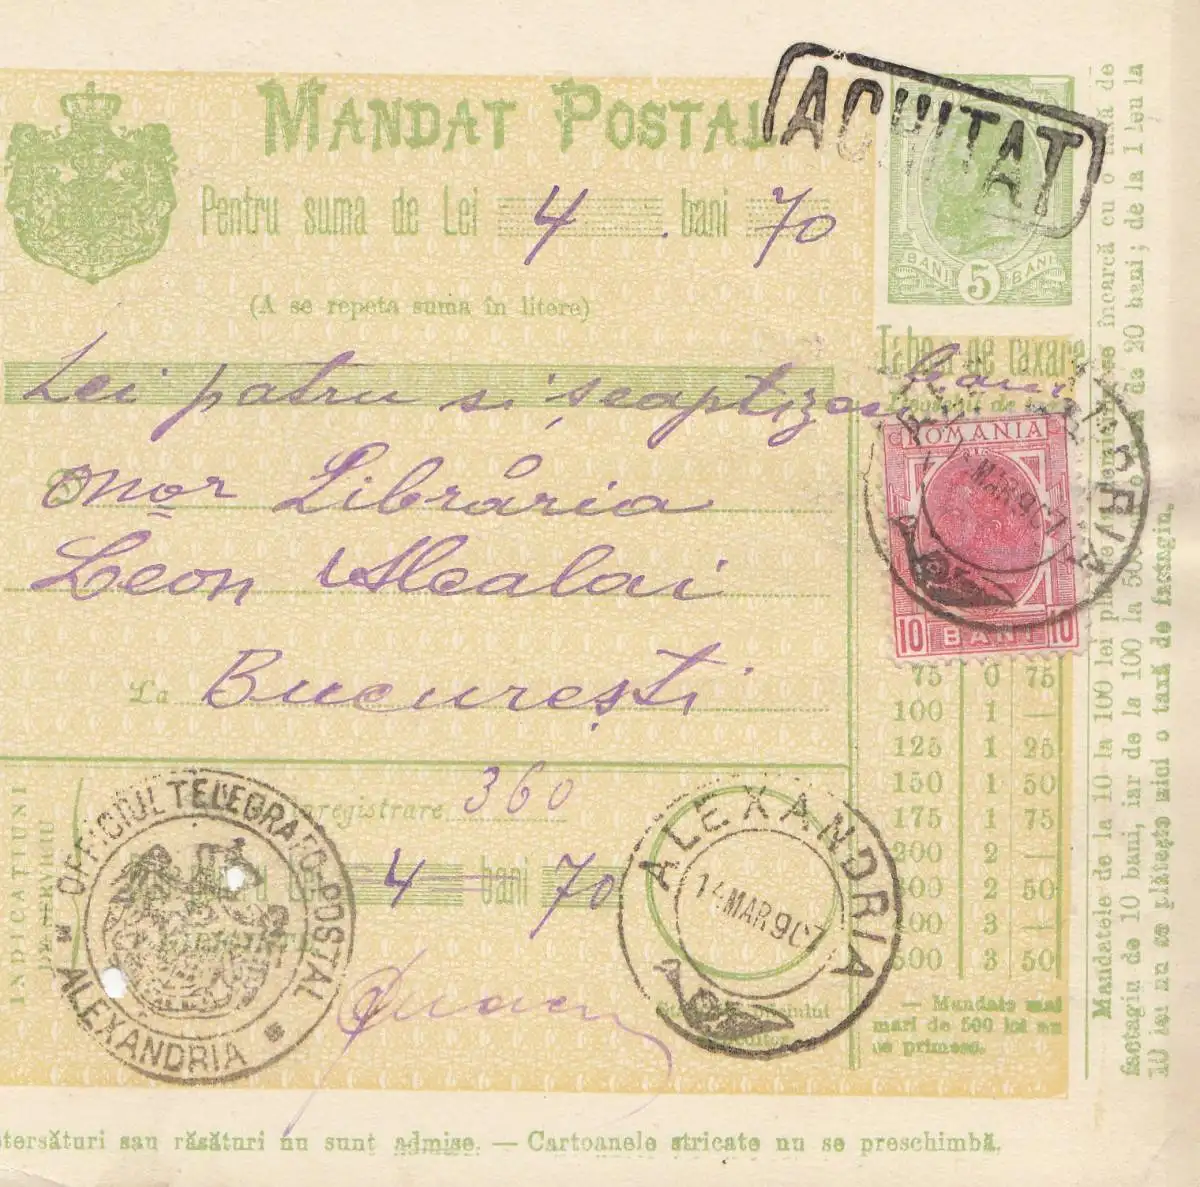 MANDAT POSTAL
ACHITAT
Pentru suma de Lei 4 bani 70
BANI 5 BANI
(A se repeta suma în litere)
Tabela de taxare
Lei patru si șeaptizeci bani
ROMANIA
MAR 907
ALEXANDRIA
10 BANI 10
Onor Librăria
Leon Alcalai
La București
75 0 75
100 1 —
125 1 25
150 1 50
175 1 75
200 2 —
300 2 50
400 3 —
500 3 50
— Mandate mai
mari de 500 lei nu
se primesc.
INDICAȚIUNI
DE SERVICIU
înregistrare 360
4 bani 70
OFFICIUL TELEGRAFO-POSTAL
* ALEXANDRIA *
ALEXANDRIA
14 MAR 907
Mandatele de la 10 la 100 lei
se încarcă cu o taxă de
factagiu de 10 bani, iar de la 100 la 500
de 20 bani; de la 1 leu la
10 lei nu se plătește nici o taxă de factagiu.
ștersături sau răsături nu sunt admise. — Cartoanele stricate nu se preschimbă.